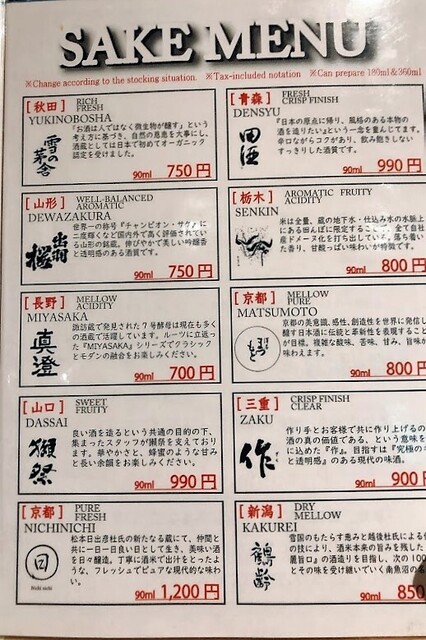 SAKE MENU
※Change according to the stocking situation. ※Tax-included notation ※Can prepare 180ml&360ml
[秋田] RICH
FRESH
YUKINOBOSHA
「お酒は人ではなく微生物が醸す」という
考え方に基づき、自然の恩恵を大事にし、
酒蔵としては日本で初めてオーガニック
認定を受けました。
雪の茅舎
90ml 750円
[青森] FRESH
CRISP FINISH
DENSYU
『日本の原点に帰り、風格のある本物の
酒を造りたい』という一念を重んじてます。
辛口ながらコクがあり、飲み飽きしない
すっきりした酒質です。
田酒
90ml 990円
[山形] WELL-BALANCED
AROMATIC
DEWAZAKURA
世界一の称号『チャンピオン・サケ』に
二度輝くなど国内外で高く評価されてい
る山形の銘蔵。伸びやかで美しい吟醸香
と透明感のある酒質です。
出羽桜
90ml 750円
[栃木] AROMATIC FRUITY
ACIDITY
SENKIN
米は全量、蔵の地下水・仕込み水の水脈上
にある田んぼに限定すること
産ドメーヌ化を打ち出してい
た香り、甘酸っぱい味わいが特徴です。
90ml 800円
[長野] MELLOW
ACIDITY
MIYASAKA
諏訪蔵で発見された7号酵母は現在も多く
の酒蔵で活躍しています。ルーツに立返っ
た『MIYASAKA』シリーズでクラシック
とモダンの融合をお楽しみください。
真澄
90ml 700円
[京都] MELLOW
PURE
MATSUMOTO
京都の美意識、感性、創造性を世界に発信し
醸す日本酒に伝統と革新性を表現すること
が目標。複雑な酸味、苦味、甘み、旨み
味わえます。
90ml 800円
[山口] SWEET
FRUITY
DASSAI
良い酒を造るという共通の目的の下、
集まったスタッフが獺祭を支えており
ます。華やかさと、蜂蜜のような甘み
と長い余韻をお楽しみください。
獺祭
90ml 990円
[三重] CRISP FINISH
CLEAR
ZAKU
作り手とお客様で共に作り上げるの
酒の真の価値である、という意味を
に込めた『作』。目指すは『究極の
と透明感』のある現代の味酒。
作
90ml 900
[京都] PURE
FRESH
NICHINICHI
松本日出彦杜氏の新たなる蔵にて、仲間と
共に一日一日良い日として生き、美味い酒
を日々醸造。丁寧に酒米で出汁をとったよう
な、フレッシュでピュアな現代的な味わ
い。
日
Nichi nichi
90ml 1,200円
[新潟] DRY
MELLOW
KAKUREI
雪国のもたらす恵みと越後杜氏による
の技により、酒米本来の旨みを残した
麗旨口』の酒造りを目指し、次の100
とその味を受け継いでいく南魚沼の名
鶴齢
90ml 850